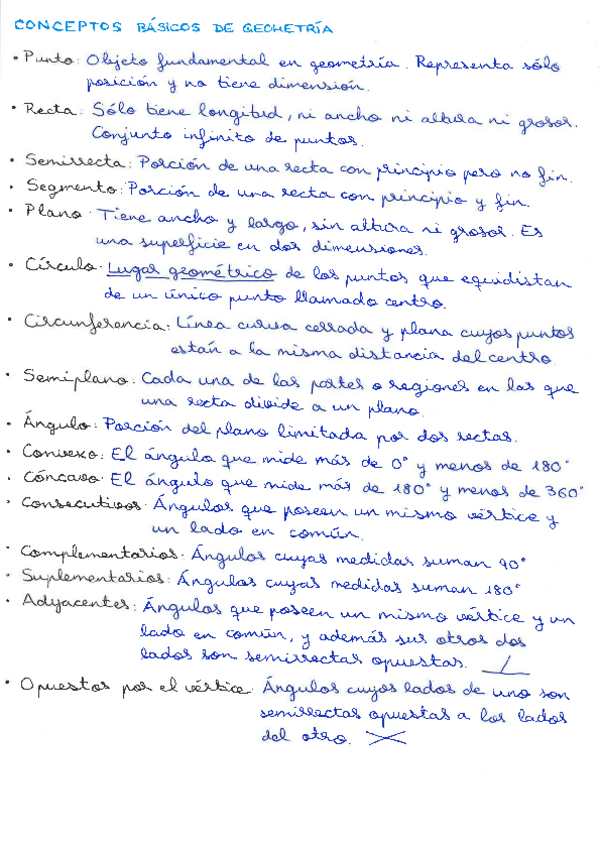 CONCEPTOS BÁSICOS DE GEOMETRÍA
• Punto: Objeto fundamental en geometría. Representa sólo
posición y no tiene dimensión.
• Recta: Sólo tiene longitud, ni ancho ni altura ni grosor.
Conjunto infinito de puntos.
• Semirrecta: Porción de una recta con principio pero no fin.
• Segmento: Porción de una recta con principio y fin.
• Plano: Tiene ancho y largo, sin altura ni grosor. Es
una superficie en dos dimensiones.
• Círculo: Lugar geométrico de los puntos que equidistan
de un único punto llamado centro.
• Circunferencia: Línea curva cerrada y plana cuyos puntos
están a la misma distancia del centro.
• Semiplano: Cada una de las partes o regiones en las que
una recta divide a un plano.
• Ángulo: Porción del plano limitada por dos rectas.
• Convexo: El ángulo que mide más de 0° y menos de 180°
• Cóncavo: El ángulo que mide más de 180° y menos de 360°
• Consecutivos: Ángulos que poseen un mismo vértice y
un lado en común.
• Complementarios: Ángulos cuyas medidas suman 90°
• Suplementarios: Ángulos cuyas medidas suman 180°
• Adyacentes: Ángulos que poseen un mismo vértice y un
lado en común, y además sus otros dos
lados son semirrectas opuestas.
• Opuestos por el vértice: Ángulos cuyos lados de uno son
semirrectas opuestas a los lados
del otro.